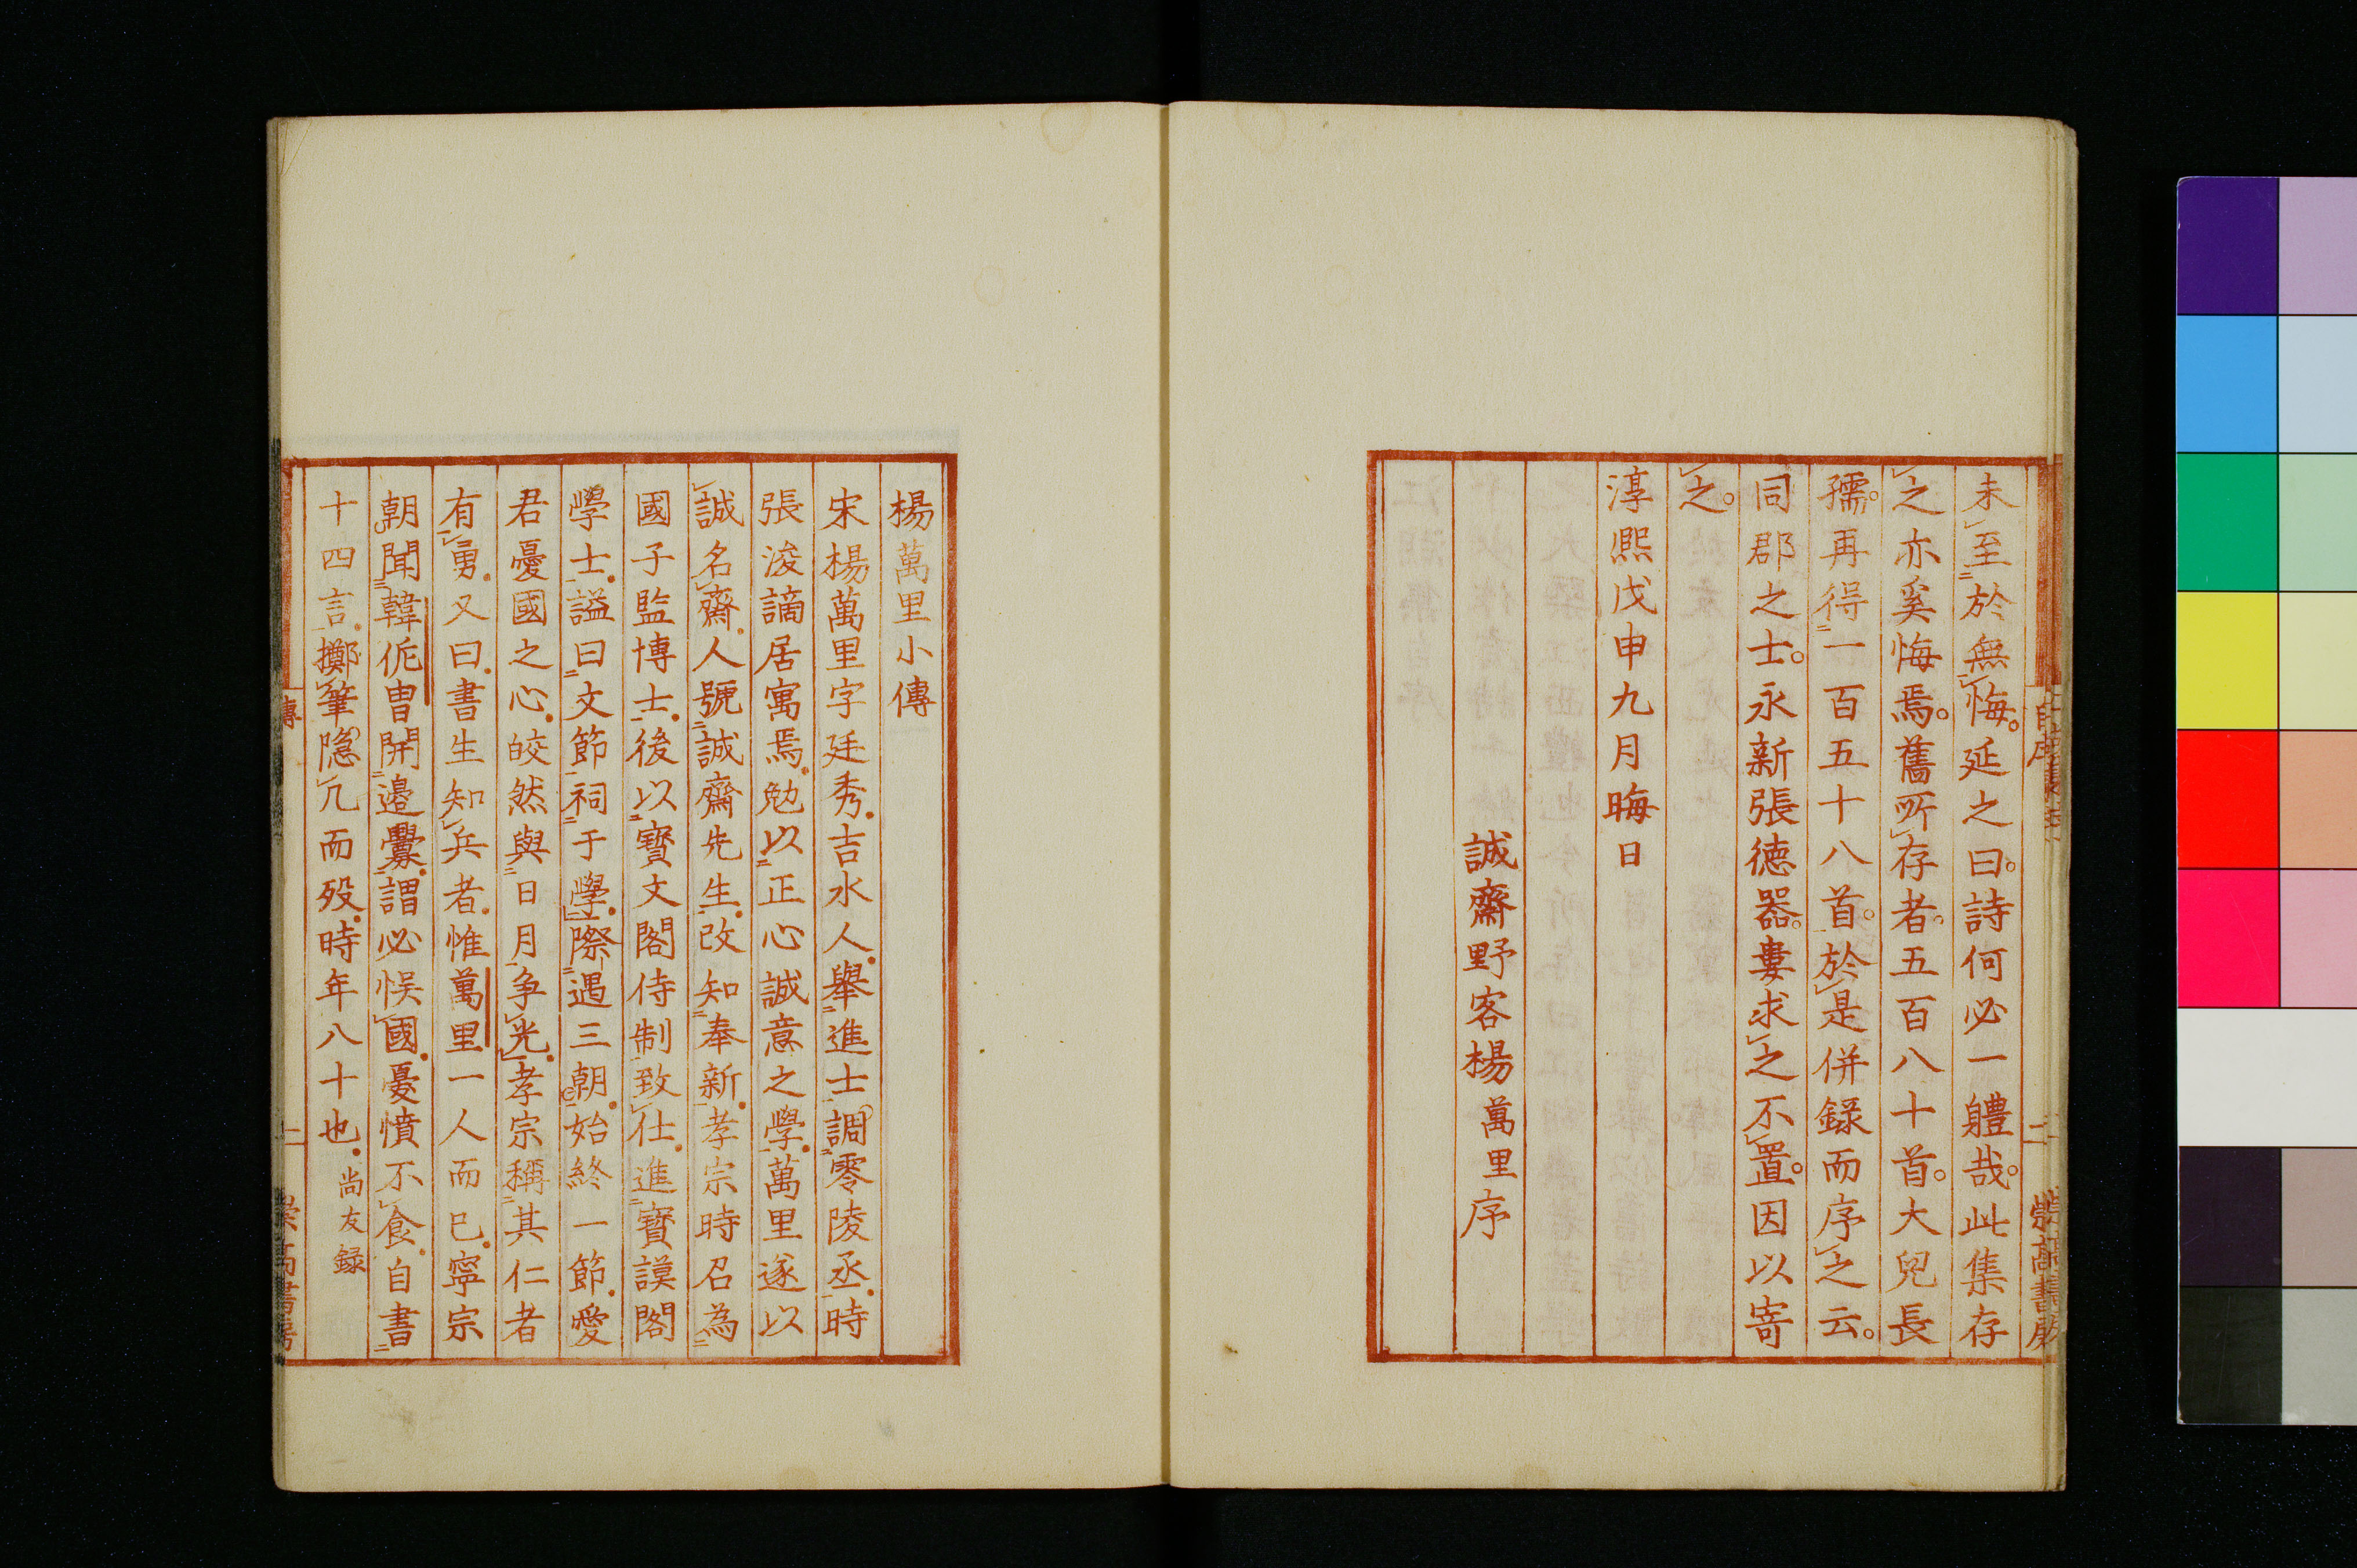 未至於無悔。延之曰。詩何必一體哉。此集存
之亦奚悔焉。舊所存者。五百八十首。大兒長
孺。再得一百五十八首。於是併録而序之云。
同郡之士。永新張徳器。婁求之不置。因以寄
之。
淳熙戊申九月晦日
誠齋野客楊萬里序
楊萬里小傳
宋楊萬里字廷秀.吉水人.舉進士調零陵丞.時
張浚謫居寓焉.勉以正心誠意之學.萬里遂以
誠名齋.人號誠齋先生.改知奉新.孝宗時召為
國子監博士.後以寶文閣侍制致仕.進寶謨閣
學士.謚曰文節祠于學.際遇三朝.始終一節.愛
君憂國之心.皎然與日月争光.孝宗稱其仁者
有勇.又曰.書生知兵者.惟萬里一人而已.寧宗
朝聞韓侂冑開邊釁.謂必悞國.憂憤不食.自書
十四言.擲筆隠几而殁.時年八十也.尚友録
傳 一
崇高書房